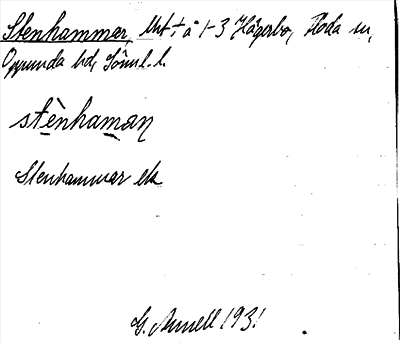 Stenhammar, Hmt å 1-3 Hagerbo, Floda sn,
Oppunda hd, Söml. l.
stènhaman
Stenhammar ek
G. Annell 1931